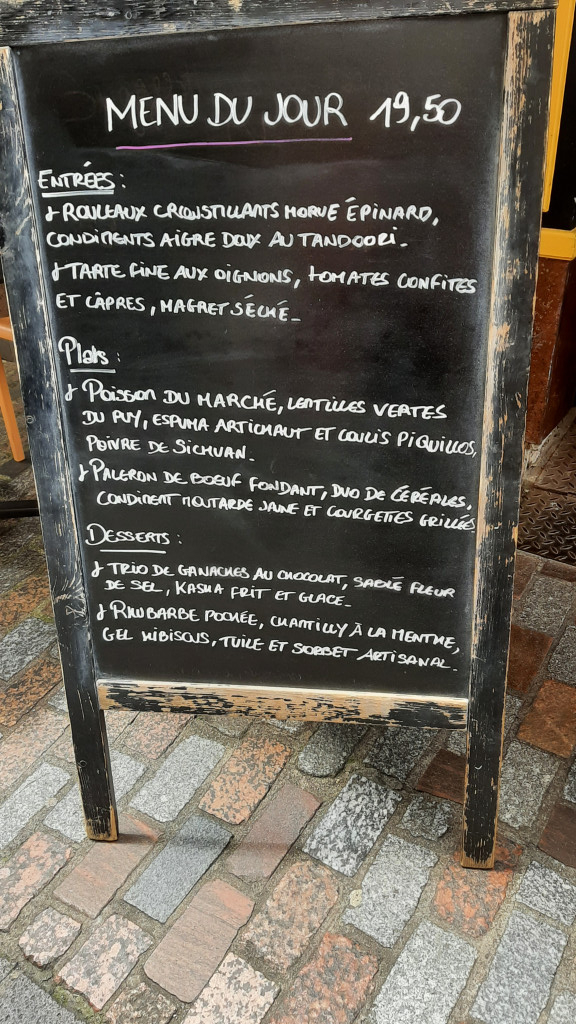 MENU DU JOUR 19,50
ENTRÉES :
ROULEAUX CROUSTILLANTS MORUE ÉPINARD,
CONDIMENTS AIGRE DOUX AU TANDOORI.
TARTE FINE AUX OIGNONS, TOMATES CONFITES
ET CÂPRES, MAGRET SÉCHÉ.
Plats :
POISSON DU MARCHÉ, LENTILLES VERTES
DU PUY, ESPUMA ARTICHAUT ET COULIS PIQUILLOS,
POIVRE DE SICHUAN.
PALERON DE BOEUF FONDANT, DUO DE CÉRÉALES,
CONDIMENT MOUTARDE JAUNE ET COURGETTES GRILLÉES
DESSERTS :
TRIO DE GANACHES AU CHOCOLAT, SABLÉ FLEUR
DE SEL, KASHA FRIT ET GLACE.
RHUBARBE POCHÉE, CHANTILLY À LA MENTHE,
GEL HIBISCUS, TUILE ET SORBET ARTISANAL.